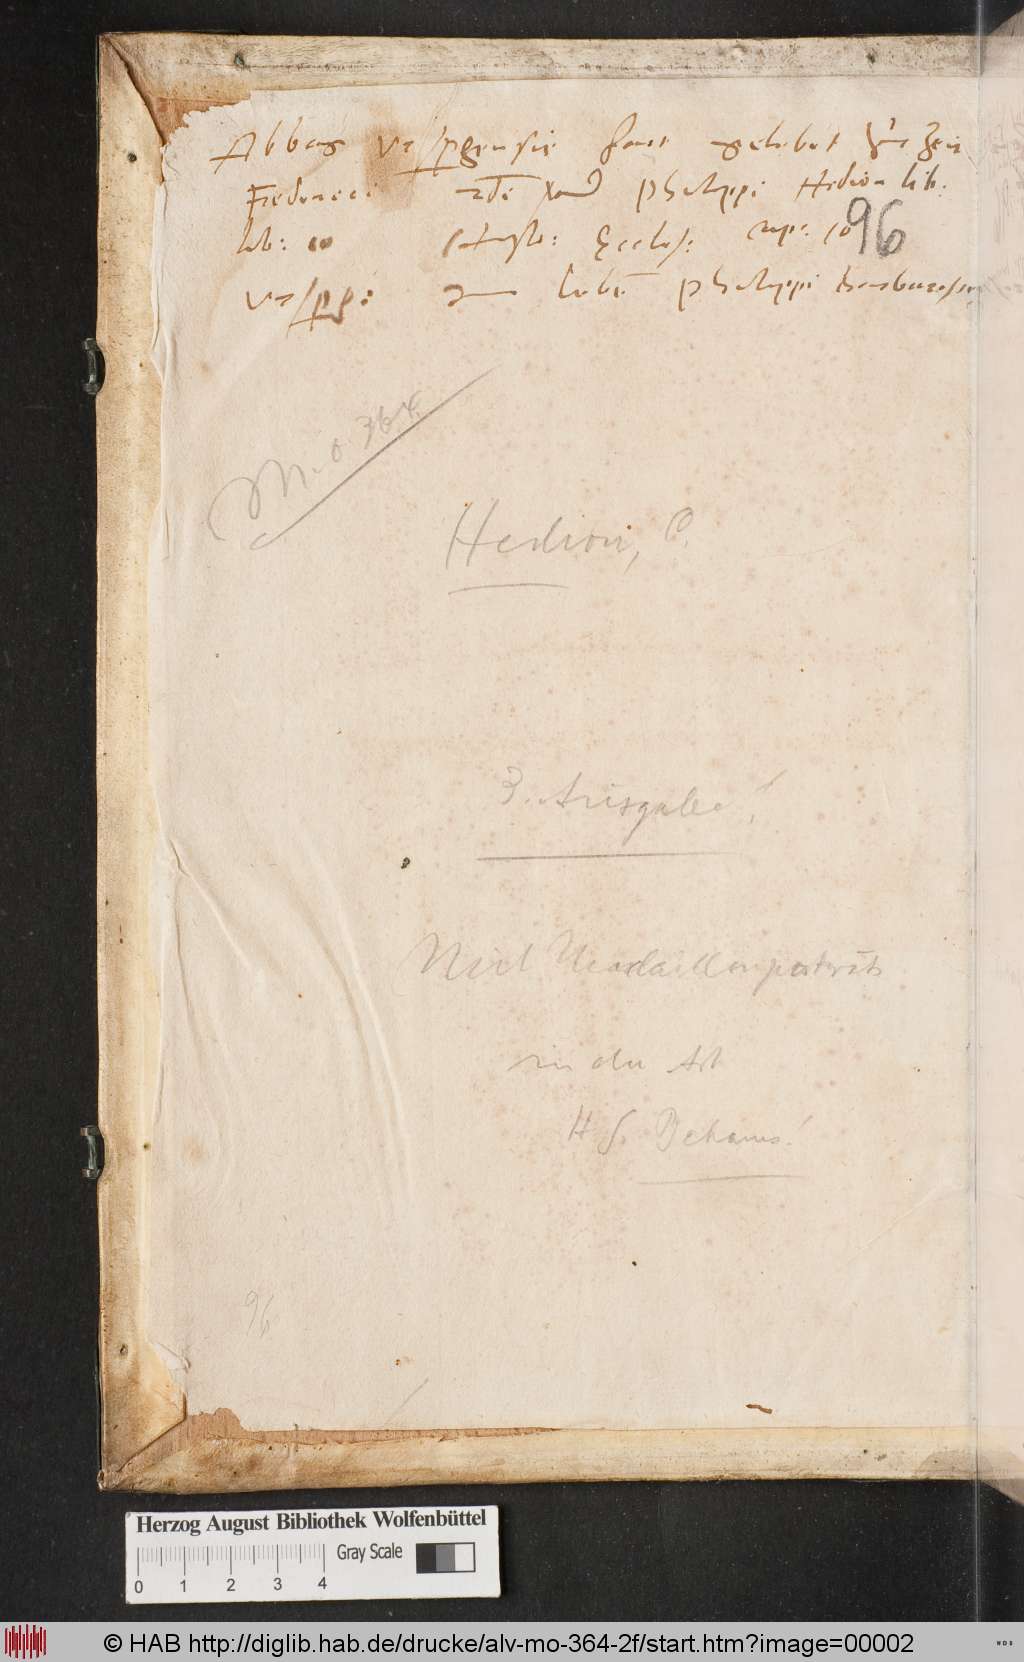 Abbas Urspergensis hatt gelebet Zur Zeit
Frederici 2di Philippi Hedion lib.
lib: Eccles: cap: 10
96
Ursp: Philippi
M.o. 364.
Hedion, C.
3. Ausgabe!
Viel Medaillenporträts
in der Art
H S. Behams!
96
Herzog August Bibliothek Wolfenbüttel
Gray Scale
0 1 2 3 4
© HAB http://diglib.hab.de/drucke/alv-mo-364-2f/start.htm?image=00002